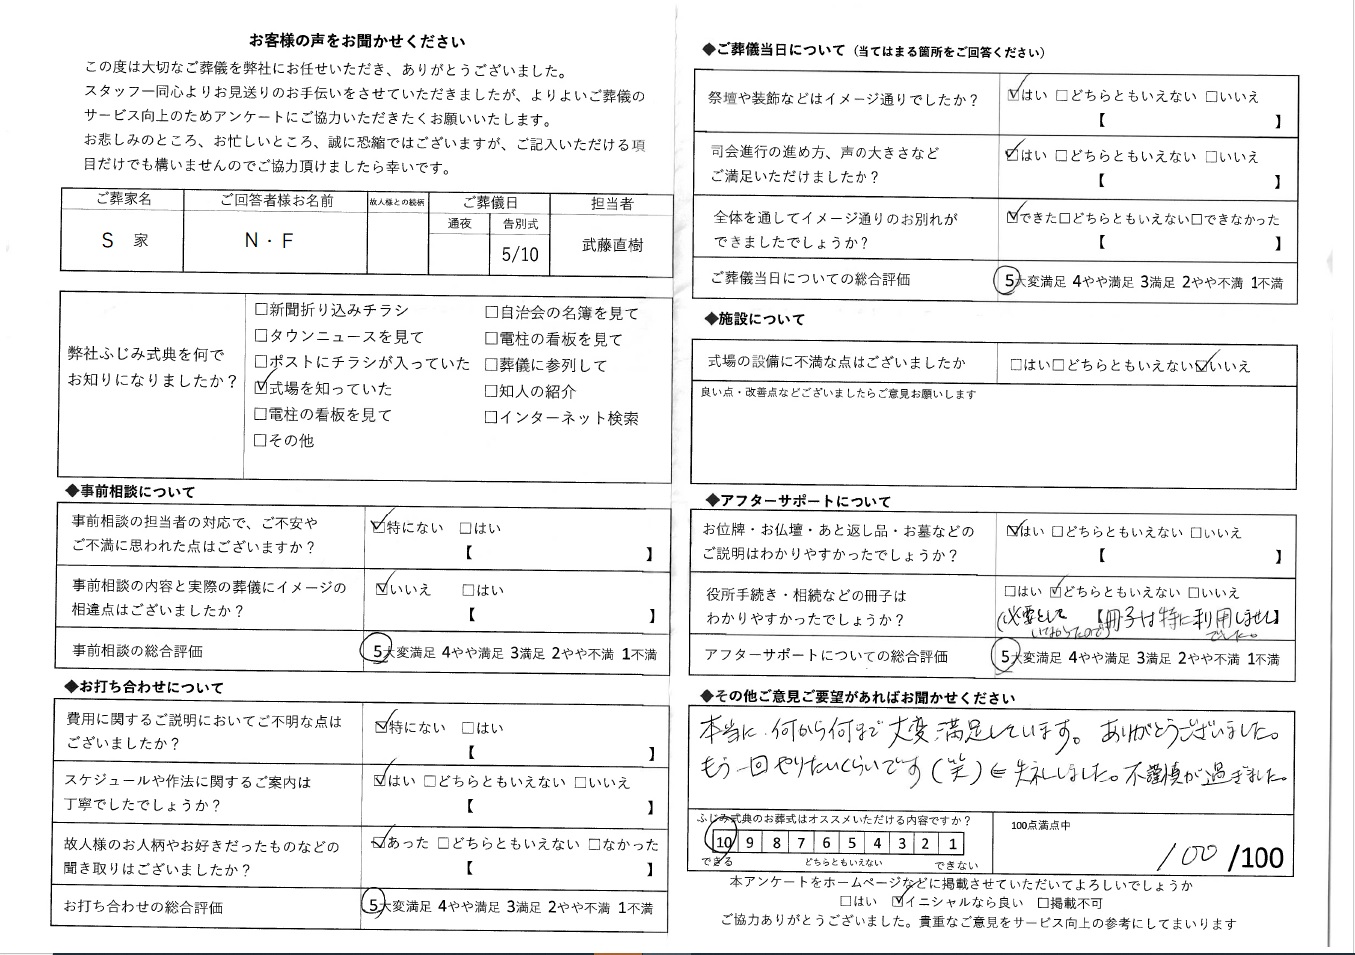 お客様の声をお聞かせください
この度は大切なご葬儀を弊社にお任せいただき、ありがとうございました。
スタッフ一同心よりお見送りのお手伝いをさせていただきましたが、よりよいご葬儀の
サービス向上のためアンケートにご協力いただきたくお願いいたします。
お悲しみのところ、お忙しいところ、誠に恐縮ではございますが、ご記入いただける項
目だけでも構いませんのでご協力頂けましたら幸いです。
ご葬家名 ご回答者様お名前 故人様との続柄 ご葬儀日 担当者
通夜 告別式
S 家 N・F 5/10 武藤直樹
弊社ふじみ式典を何で
お知りになりましたか？
□新聞折り込みチラシ □自治会の名簿を見て
□タウンニュースを見て □電柱の看板を見て
□ポストにチラシが入っていた □葬儀に参列して
☑式場を知っていた □知人の紹介
□電柱の看板を見て □インターネット検索
□その他
◆事前相談について
事前相談の担当者の対応で、ご不安や ☑特にない □はい
ご不満に思われた点はございますか？ 【 】
事前相談の内容と実際の葬儀にイメージの ☑いいえ □はい
相違点はございましたか？ 【 】
事前相談の総合評価 5大変満足 4やや満足 3満足 2やや不満 1不満
◆お打ち合わせについて
費用に関するご説明においてご不明な点は ☑特にない □はい
ございましたか？ 【 】
スケジュールや作法に関するご案内は ☑はい □どちらともいえない □いいえ
丁寧でしたでしょうか？ 【 】
故人様のお人柄やお好きだったものなどの ☑あった □どちらともいえない □なかった
聞き取りはございましたか？ 【 】
お打ち合わせの総合評価 5大変満足 4やや満足 3満足 2やや不満 1不満
◆ご葬儀当日について（当てはまる箇所をご回答ください）
祭壇や装飾などはイメージ通りでしたか？ ☑はい □どちらともいえない □いいえ
【 】
司会進行の進め方、声の大きさなど ☑はい □どちらともいえない □いいえ
ご満足いただけましたか？ 【 】
全体を通してイメージ通りのお別れが ☑できた□どちらともいえない□できなかった
できましたでしょうか？ 【 】
ご葬儀当日についての総合評価 5大変満足 4やや満足 3満足 2やや不満 1不満
◆施設について
式場の設備に不満な点はございましたか □はい□どちらともいえない☑いいえ
良い点・改善点などございましたらご意見お願いします
◆アフターサポートについて
お位牌・お仏壇・あと返し品・お墓などの ☑はい □どちらともいえない □いいえ
ご説明はわかりやすかったでしょうか？ 【 】
役所手続き・相続などの冊子は □はい ☑どちらともいえない □いいえ
わかりやすかったでしょうか？ (必要として 【冊子は特に利用しません】
いなかったので) でした。
アフターサポートについての総合評価 5大変満足 4やや満足 3満足 2やや不満 1不満
◆その他ご意見ご要望があればお聞かせください
本当に何から何まで大変満足しています。ありがとうございました。
もう一回やりたいくらいです(笑)⇐失礼しました。不謹慎が過ぎました。
ふじみ式典のお葬式はオススメいただける内容ですか？ 100点満点中
10 9 8 7 6 5 4 3 2 1
できる どちらともいえない できない
100/100
本アンケートをホームページなどに掲載させていただいてよろしいでしょうか
□はい ☑イニシャルなら良い □掲載不可
ご協力ありがとうございました。貴重なご意見をサービス向上の参考にしてまいります